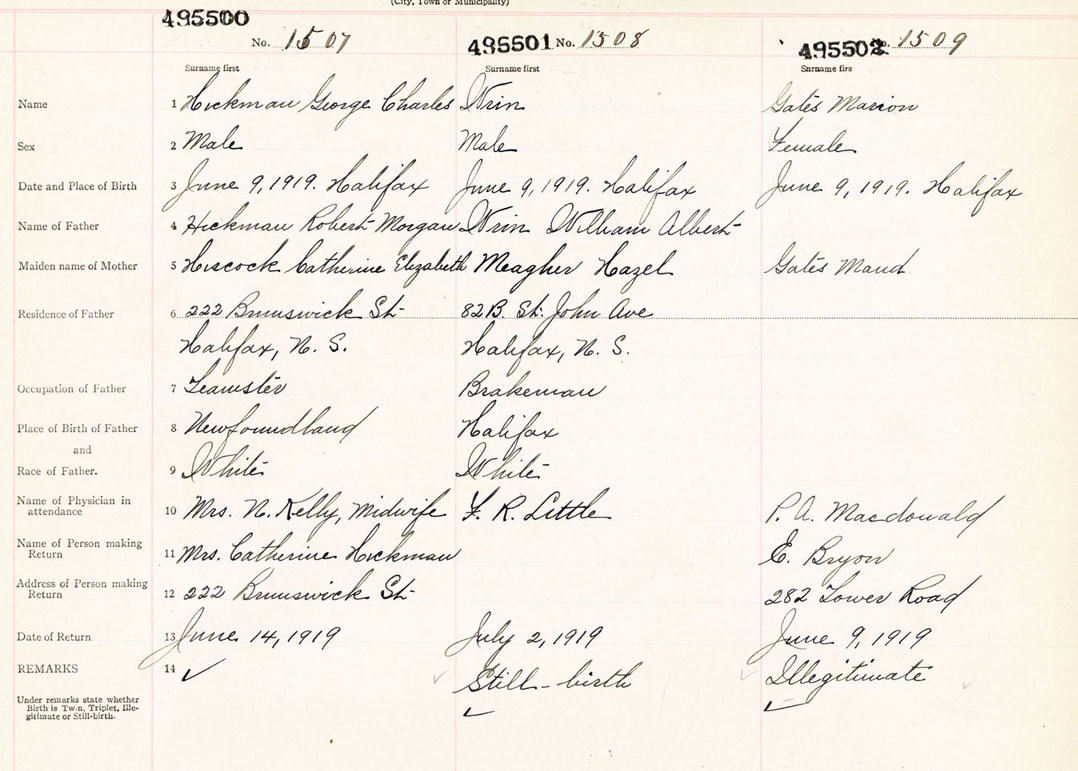 (City, Town or Municipality)
495500 495501 495502
No. 1507 No. 1508 No. 1509
Surname first Surname first Surname firs
Name 1 Hickman George Charles Wrin Gates Marion
Sex 2 Male Male Female
Date and Place of Birth 3 June 9, 1919. Halifax June 9, 1919. Halifax June 9, 1919. Halifax
Name of Father 4 Hickman Robert Morgan Wrin William Albert
Maiden name of Mother 5 Hiscock Catherine Elizabeth Meagher Hazel Gates Maud
Residence of Father 6 222 Brunswick St. 82B. St. John Ave
Halifax, N. S. Halifax, N. S.
Occupation of Father 7 Teamster Brakeman
Place of Birth of Father 8 Newfoundland Halifax
and
Race of Father. 9 White White
Name of Physician in attendance 10 Mrs. N. Kelly, Midwife F. R. Little P. A. Macdonald
Name of Person making Return 11 Mrs. Catherine Hickman E. Bryon
Address of Person making Return 12 222 Brunswick St. 282 Tower Road
Date of Return 13 June 14, 1919 July 2, 1919 June 9, 1919
REMARKS 14 ✓ Still-birth Illegitimate
Under remarks state whether
Birth is Twin, Triplet, Ille-
gitimate or Still-birth.